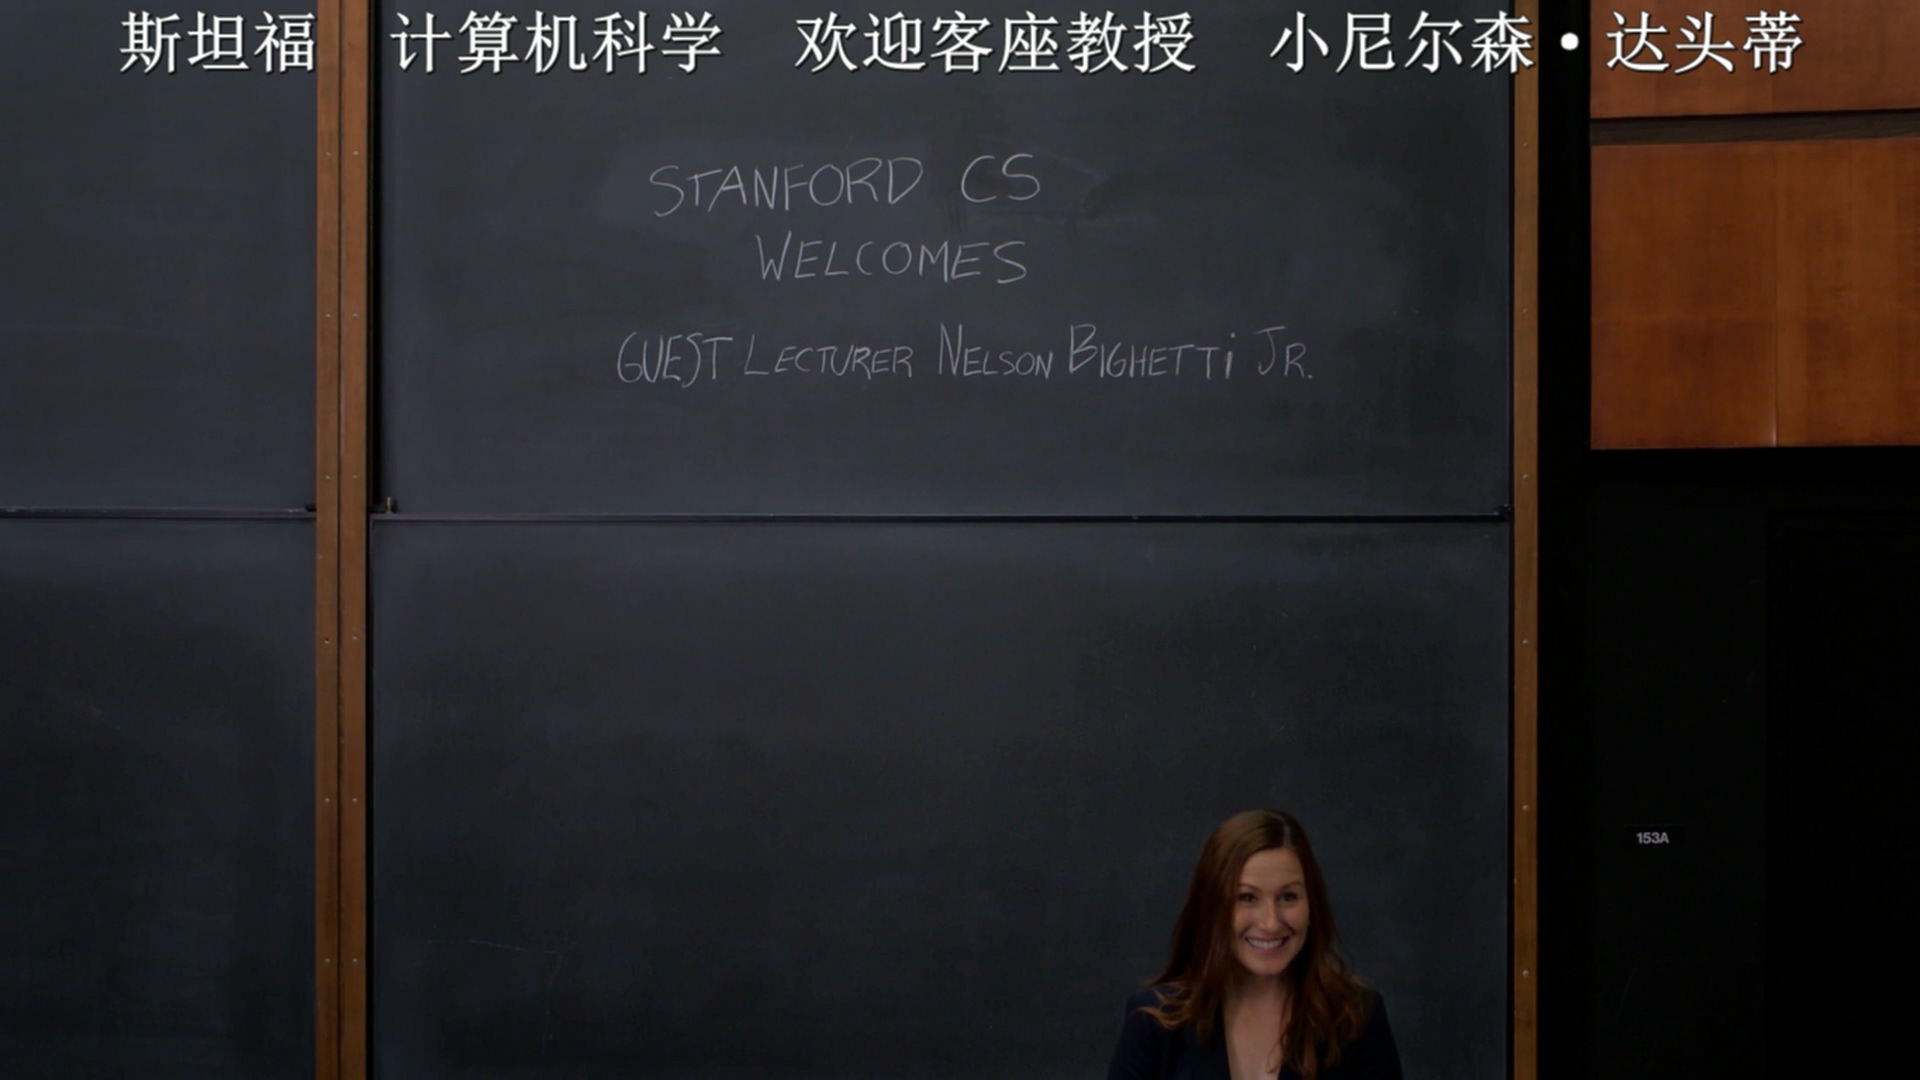 斯坦福 计算机科学 欢迎客座教授 小尼尔森•达头蒂
STANFORD CS
WELCOMES
GUEST LECTURER NELSON BIGHETTi JR.
153A